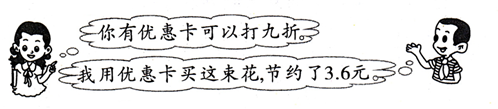 你有优惠卡可以打九折。
我用优惠卡买这束花,节约了3.6元。